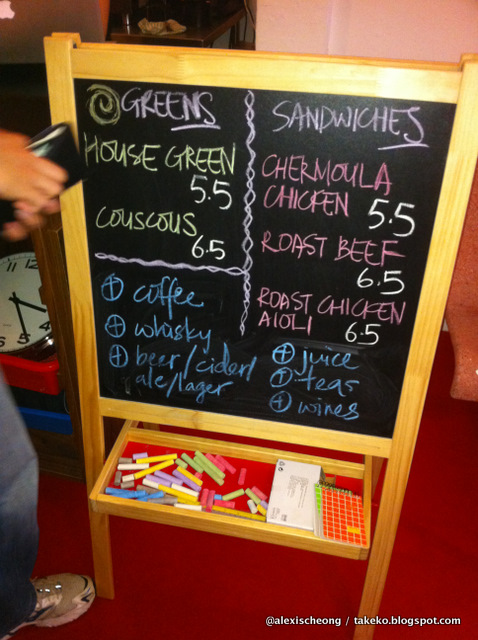 GREENS
HOUSE GREEN
5.5
COUSCOUS
6.5
SANDWICHES
CHERMOULA
CHICKEN 5.5
ROAST BEEF
6.5
ROAST CHICKEN
AIOLI 6.5
+ coffee
+ whisky
+ beer/cider/
ale/lager
+ juice
+ teas
+ wines
@alexischeong / takeko.blogspot.com